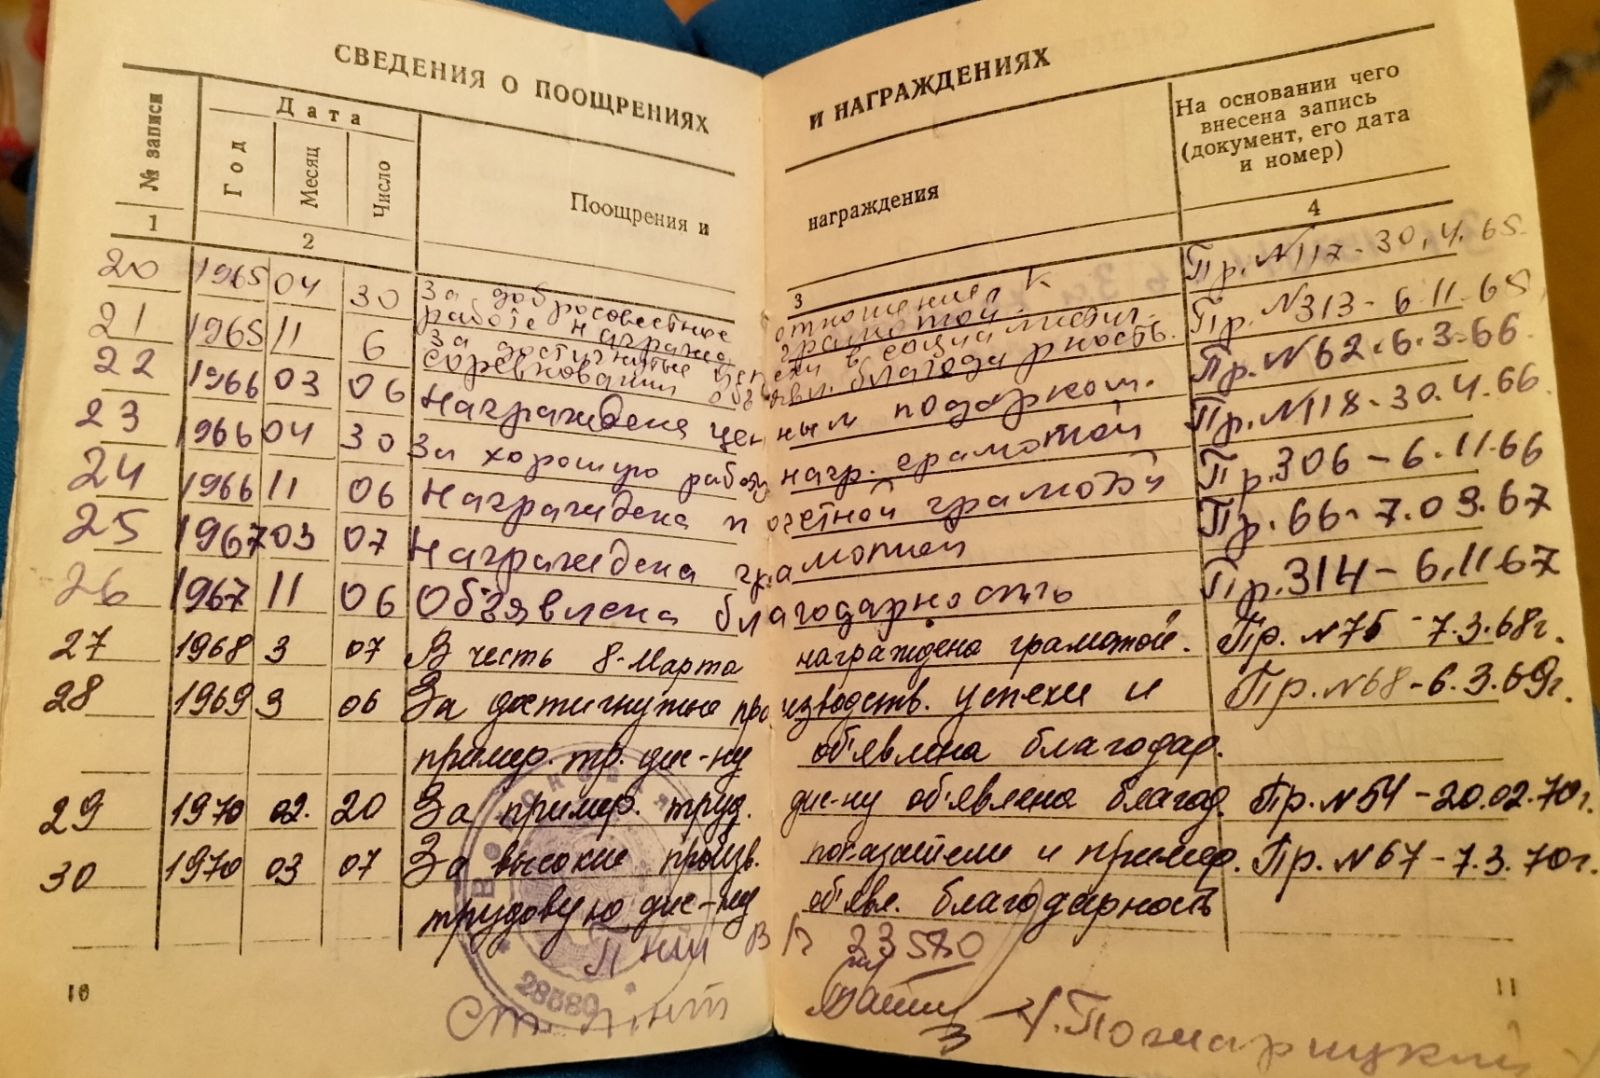 СВЕДЕНИЯ О ПООЩРЕНИЯХ И НАГРАЖДЕНИЯХ
№ записи
Дата
Год
Месяц
Число
Поощрения и награждения
На основании чего
внесена запись
(документ, его дата
и номер)
1 2 3 4
20 1965 04 30 За добросовестное отношение к Пр. №117-30.4.65.
работе награжд. грамотой.
21 1965 11 6 За достигнутые успехи в социалистич. Пр. №313-6.11.65
соревновании объявл. благодарность.
22 1966 03 06 Награждена ценным подарком. Пр. №62.6.3-66.
23 1966 04 30 За хорошую работу нагр. грамотой Пр. №118-30.4.66.
24 1966 11 06 Награждена почетной грамотой Пр. 306-6.11.66
25 1967 03 07 Награждена грамотой Пр. 66-7.03.67
26 1967 11 06 Объявлена благодарность Пр. 314-6.11.67
27 1968 3 07 В честь 8-Марта награждена грамотой. Пр. №75-7.3.68г.
28 1969 3 06 За достигнутые производств. успехи и Пр. №68-6.3.69г.
пример. тр. дис-ну объявлена благодар.
29 1970 02. 20 За пример. труд. дис-ну объявлена благод. Пр. №54-20.02.70г.
30 1970 03 07 За высокие произв. показатели и пример. Пр. №67-7.3.70г.
трудовую дис-ну объявл. благодарность
В/г 23580
28580
10
11